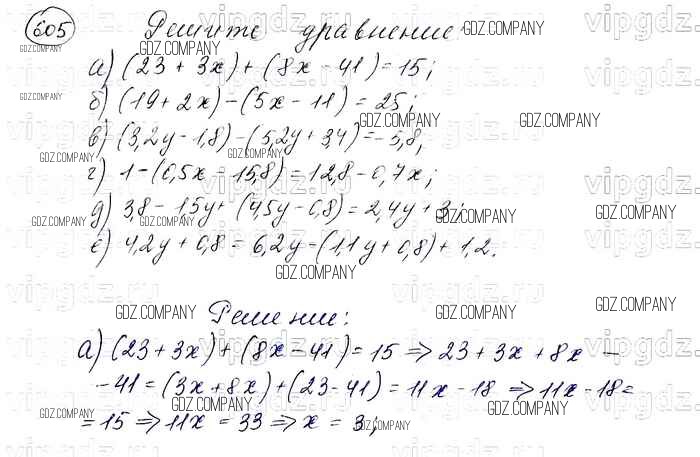 605 Решите уравнение:
а) (23 + 3x) + (8x - 41) = 15;
б) (19 + 2x) - (5x - 11) = 25;
в) (3,2y - 1,8) - (5,2y + 3,4) = -5,8;
г) 1 - (0,5x - 15,8) = 12,8 - 0,7x;
д) 3,8 - 1,5y + (4,5y - 0,8) = 2,4y + 3;
е) 4,2y + 0,8 = 6,2y - (1,1y + 0,8) + 1,2.
Решение:
а) (23 + 3x) + (8x - 41) = 15 ⇒ 23 + 3x + 8x -
- 41 = (3x + 8x) + (23 - 41) = 11x - 18 ⇒ 11x - 18 =
= 15 ⇒ 11x = 33 ⇒ x = 3;